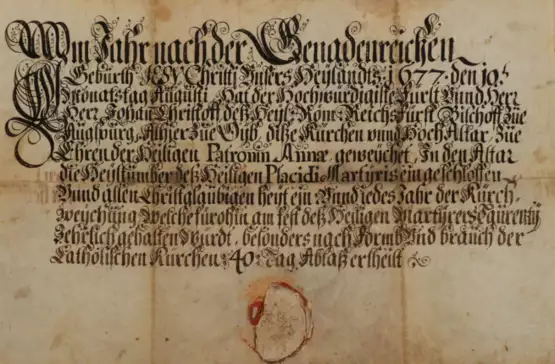 Im Jahr nach der Genadenreichen
Geburth JESV Christi Unsers Heylandts, 1677. den 19.
Monatstag Augusti, Hat der Hochwürdigiste Fürst Vnnd Herr
Herr Johan Christoff deß Heyl: Röm: Reichs Fürst, Bischoff zue
Augspurg, Alhier zue dise Kürchen vnnd Hoch Altar, zue
Ehren der Heiligen Patronin Annæ, geweychet, In den Altar
die Heylthumber deß Heiligen Placidi Martyris eingeschlossen
Vnnd allen Christglaubigen heyt ein Vnnd jedes Jahr der Kürch-
weychung welche fürohin am fest deß Heiligen Martyrers
Jehrlich gehalten würdt, besonders nach Form Vnd brauch der
Catholischen Kürchen, 40 Tag Ablaß ertheilt